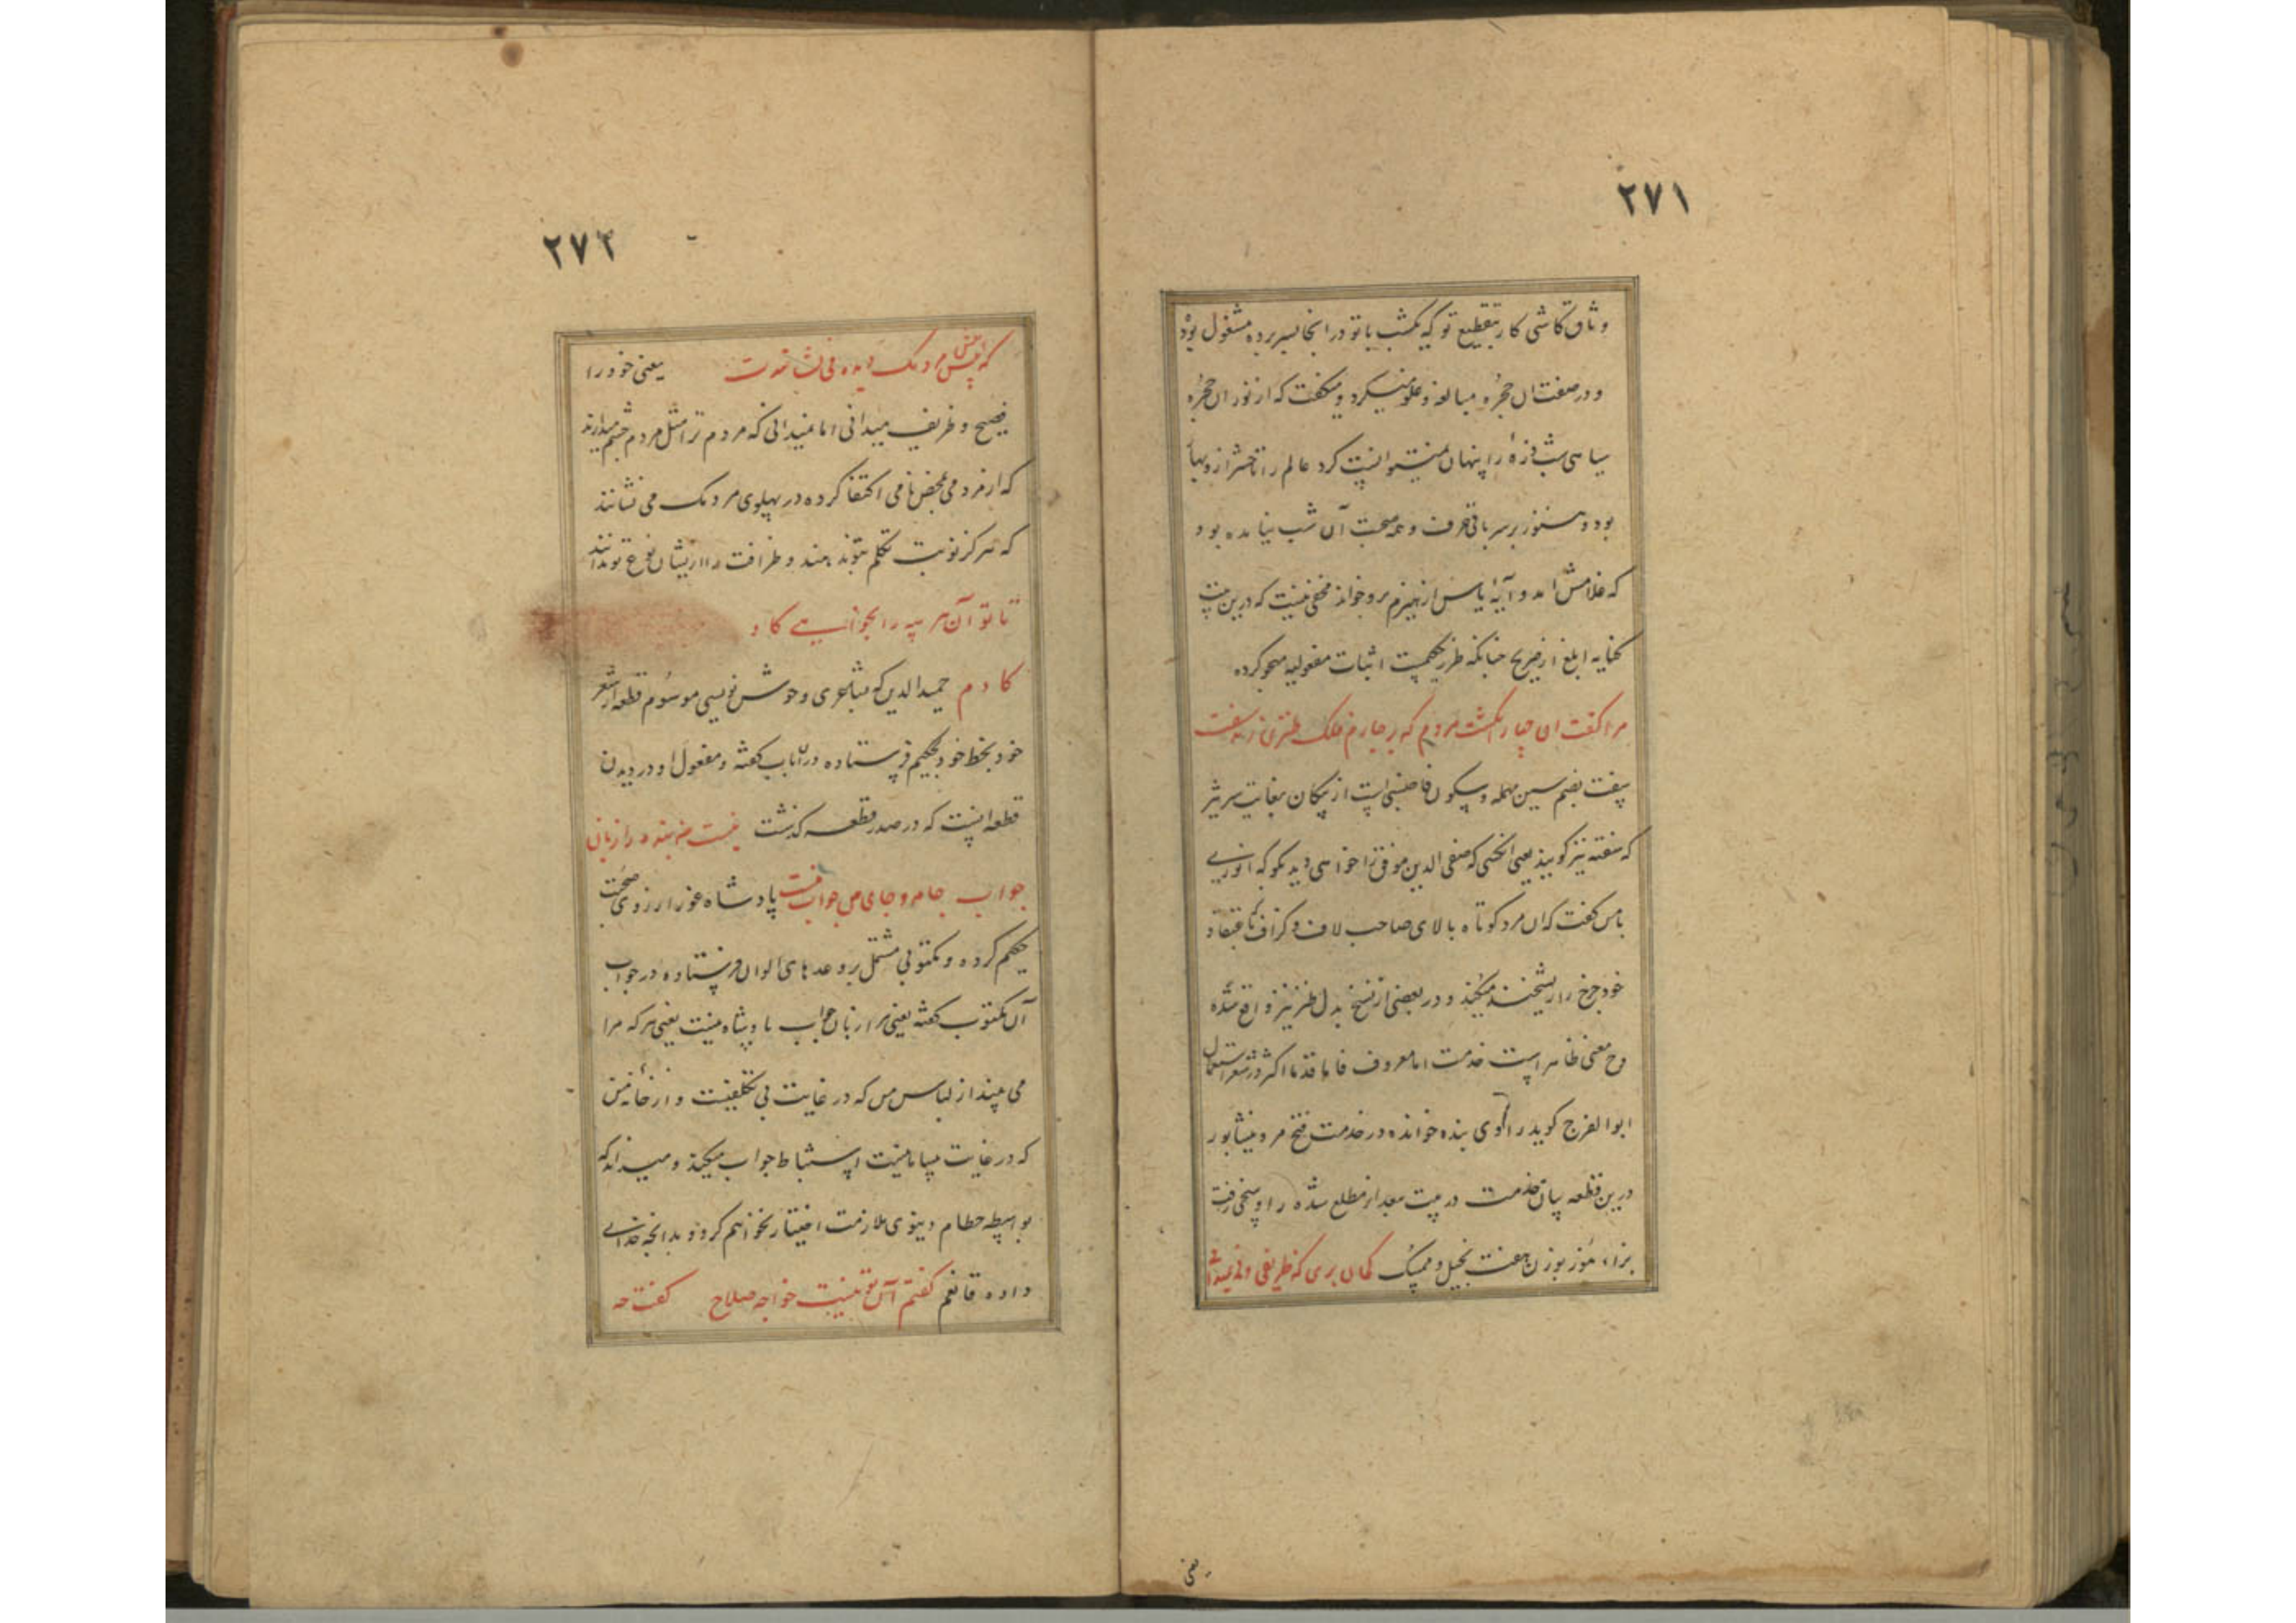 ۲۷۱
وثاق کاشی کار بتقطیع تو که یکشب با تو در انجا بسر برده مشغول بود
و در صفت ان حجره مبالغه و غلو میکرد و میگفت که از نور ان حجره
سیاهی شب ذره را پنهان نمیتوانست کرد عالم را تا حشر از و بها
بود و هنوز بر سر باقی حرف و صحبت آن شب نیامده بود
که غلامش امد و آیه یاس از هیزم برو خواند مخفی نیست که درین بیت
کنایه ابلغ از صریح چنانکه طرز حکیمست اثبات مفعولیه مهجو کرده
مرا گفت ان چار انگشت مردم که بر چارم فلک طنزی زند سفت
سفت بضم سین مهمله و سکون فا جنسی است از پیکان بغایت سر تیز
که سفته نیز گویند یعنی انکسی که صفی الدین موفق را خواهی دید بگو که انوری
با من گفت که ان مرد کوتاه بالای صاحب لاف و گزاف که باعتقاد
خود چرخ را ریشخند میکند و در بعضی از نسخ بدل طنز نیز واقع شده
وح معنی ظاهر است خدمت اما معروف فاما قدما اکثر در شعر استعمال
ابوالفرج گوید راوی بنده خوانده در خدمت فتح مرو و نیشابور
درین قطعه بیان خدمت در بیت بعد از مطلع شده را و سخی رفت
بزاء مُوز بوزن جفت بخیل و ممسک گمان بری که ظریفی و نمیدانی
یعنی
۲۷۲
که پیش مردمک دیده می‌نشانندت یعنی خود را
فصیح و ظریف میدانی اما نمیدانی که مردم ترا مثل مردم چشم میدارند
که از مردمی بمحض نامی اکتفا کرده در پهلوی مردمک می نشانند
که هرگز نوبت تکلم بتو ندهند و ظرافت را از ایشان نوع تو ندانند
تا تو آن هر سه را بخوانی گاو
گاو دم حمیدالدین که بشاعری و خوش نویسی موسوم قطعه از شعر
خود بخط خود بحکیم فرستاده در انباب گفته و مفعول او در دیدن
قطعه ایست که در صدر قطعه گذشت نیست مر بنده را زبان
جواب جامه و جای من جواب منست پادشاه غور ارزوی صحبت
حکیم کرده و مکتوبی مشتمل بر وعدهای الوان فرستاده در جواب
آن مکتوب گفته یعنی مرا زبان جواب پادشاه نیست یعنی هر که مرا
می بیند از لباس من که در غایت بی تکلفیست و از خانه من
که در غایت بیسامانیست استنباط جواب میکند و میداند که
بواسطه حطام دنیوی ملازمت اختیار نخواهم کرد و بدانچه خدای
داده قانعم گفتم آن تو نیست خواجه صلاح گفت حه